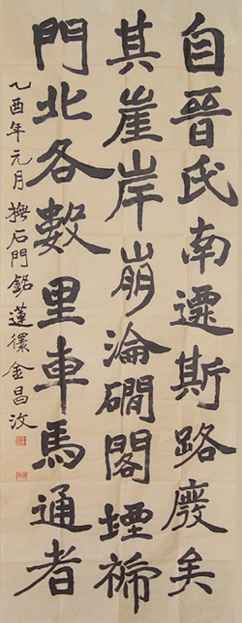 自晉氏南遷斯路廢矣
其崖岸崩淪磵閣堙褫
門北各數里車馬通者
乙酉年元月撫石門銘蓮金昌汶